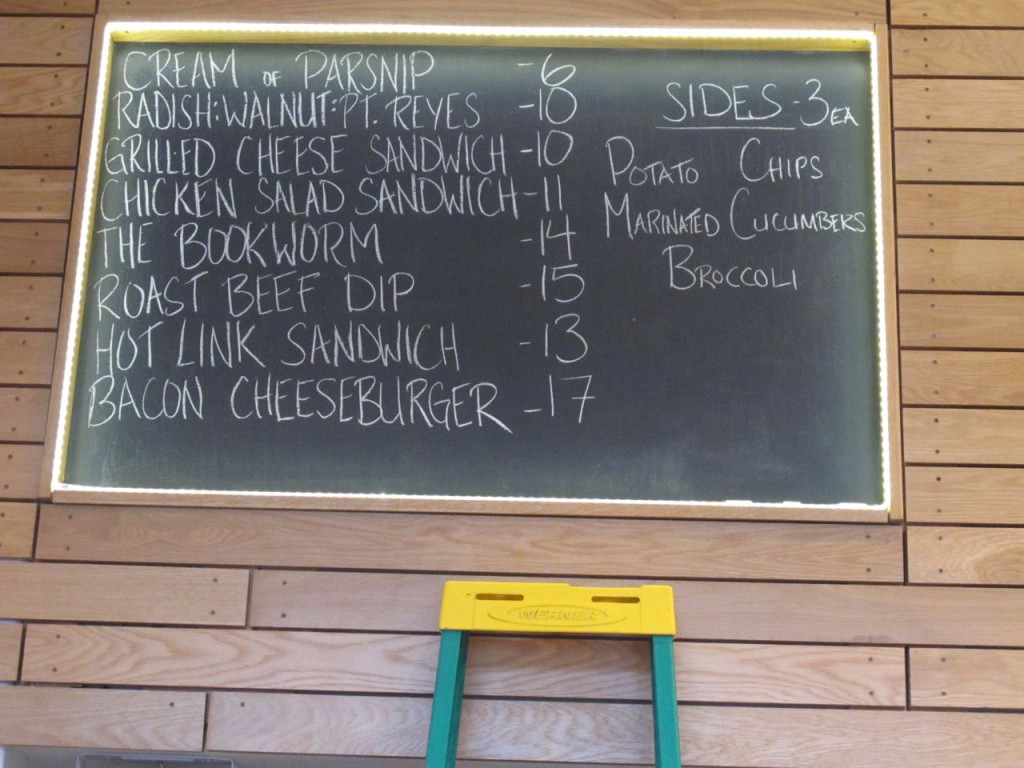 CREAM OF PARSNIP -6
RADISH:WALNUT:PT. REYES -10
GRILLED CHEESE SANDWICH -10
CHICKEN SALAD SANDWICH -11
THE BOOKWORM -14
ROAST BEEF DIP -15
HOT LINK SANDWICH -13
BACON CHEESEBURGER -17
SIDES -3 EA
POTATO CHIPS
MARINATED CUCUMBERS
BROCCOLI
WERNER